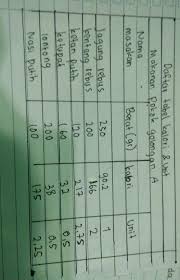 Daftar tabel kalori & Unit
Makanan Pokok golongan A
Nama masakan Berat (gr) kalori Unit
Jagung rebus 250 90.2 1
kentang rebus 200 166 2
ketan putih 120 217 2.75
ketupat 160 32 0.5
lontong 200 38 0.5
Nasi putih 100 175 2.25